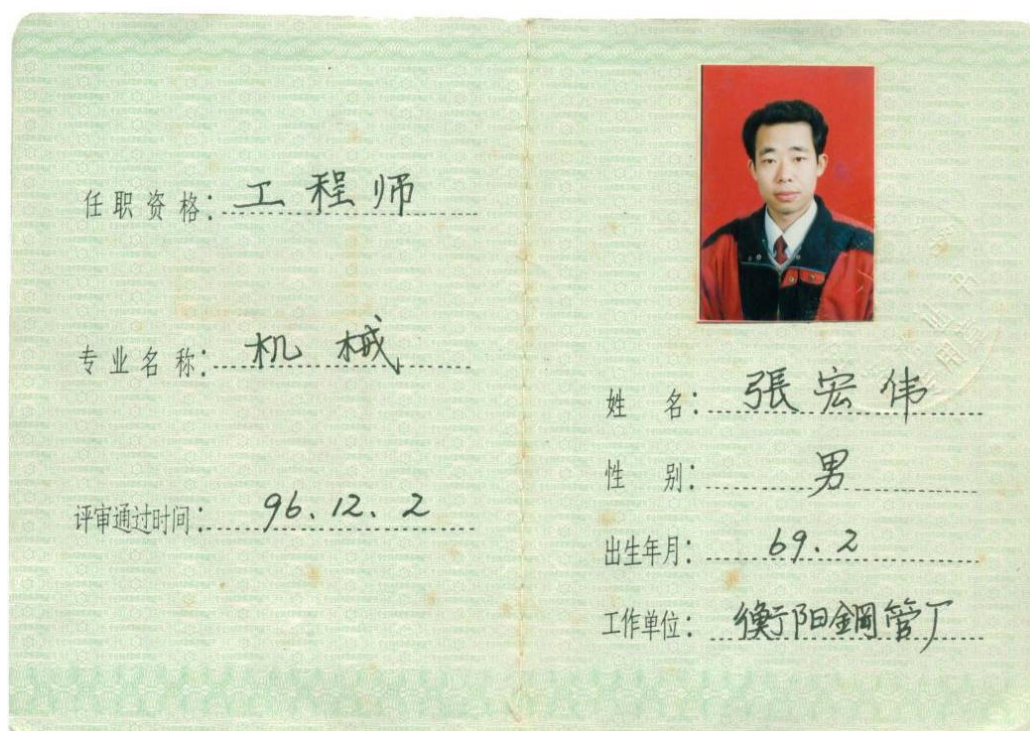 任职资格：工程师
专业名称：机械
评审通过时间：96.12.2
姓名：張宏伟
性别：男
出生年月：69.2
工作单位：衡阳鋼管厂